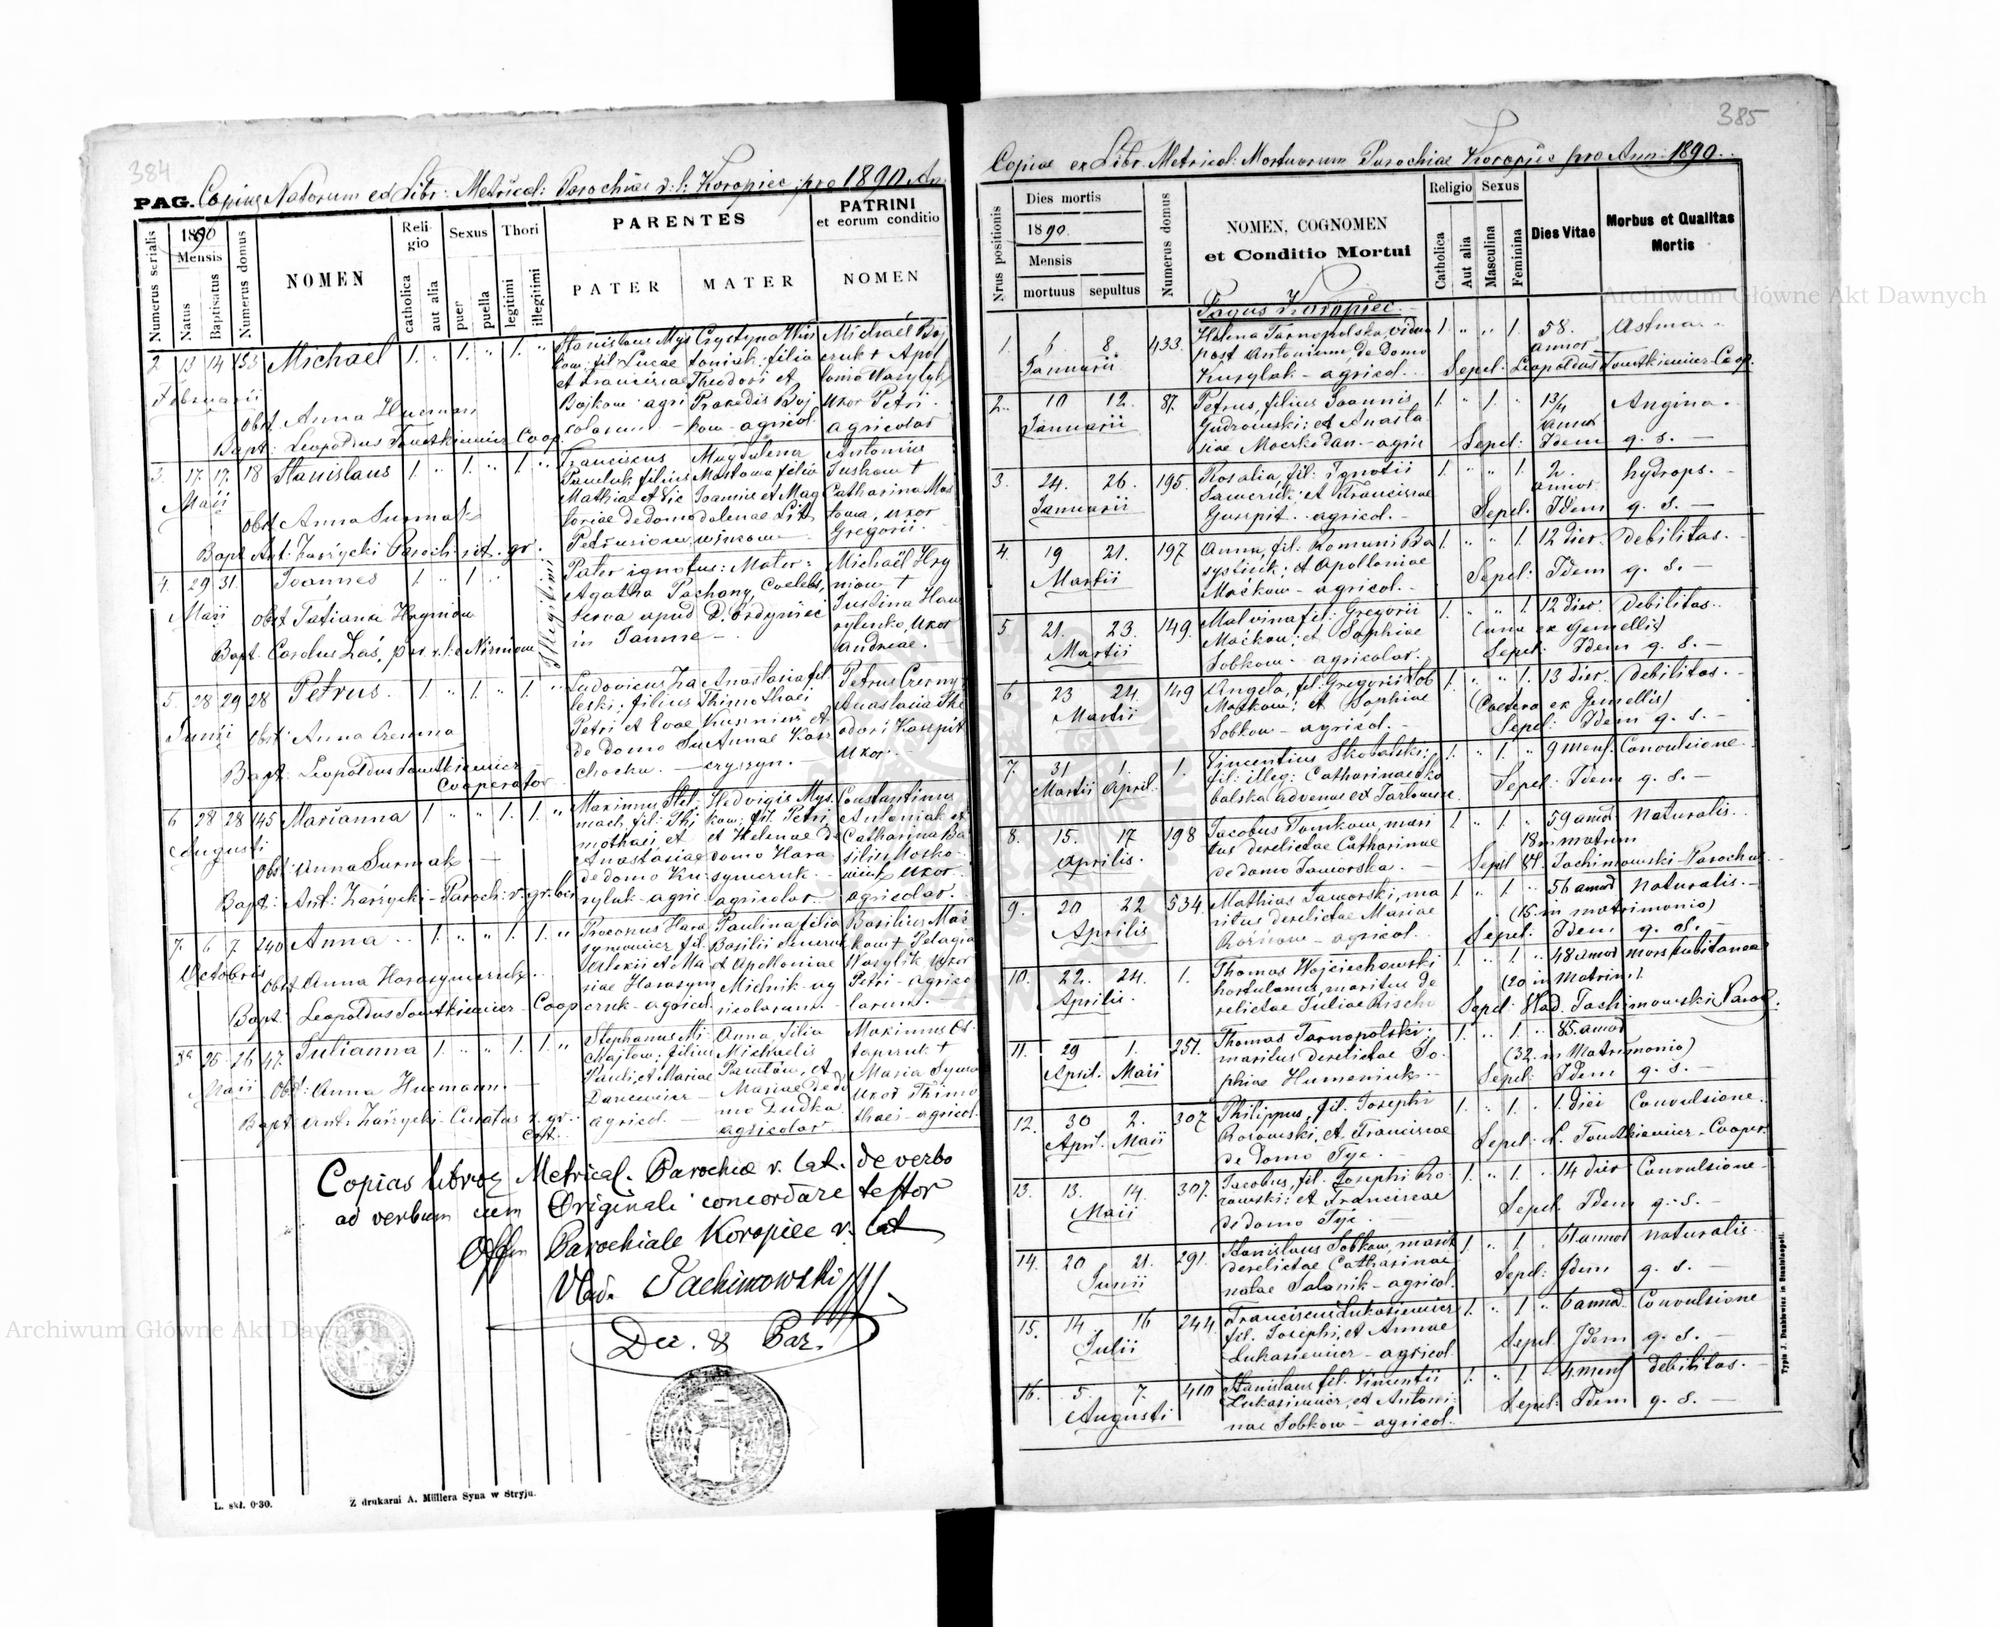 384
PAG. Copiae Natorum ex Libr: Metrical: Parochiae r. l: Koropiec pro 1890 An.
Numerus serialis
1890
Mensis
Natus
Baptisatus
Numerus domus
NOMEN
Religio
catholica
aut alia
Sexus
puer
puella
Thori
legitimi
illegitimi
PARENTES
PATER
MATER
PATRINI
et eorum conditio
NOMEN
2 13 14 153 Michael 1. " 1. " 1. "
Februarii
Obst Anna Hucman
Bapt: Leopoldus Coop.
Stanislaus Mys
kow, fil. Lucae
et Franciscae
Bojkow agri
colarum
filia
Theodori et
Praxedis Boj
kow agricol
Michael Boj
czuk + Apol
lonia Wasylyk
uxor Petri
agricolar
3. 17. 17. 18 Stanislaus 1. " 1. " 1. "
Maii
Obst Anna Surmak
Bapt. Ant: Zarzycki Paroch. rit. gr.
Franciscus
Pawluk filius
Mathiae et Vic
toriae de domo
Magdalena
Mostowa filia
Joannis et Mag
dalenae
Antonius
Juskow +
Catharina Mos
towa, uxor
Gregorii
4. 29 31. Joannes 1. " 1. "
Illegitimi
Maii Obst Tatiana Hryniow
Bapt. Carolus Łaś, par r. l. Nizniow
Pater ignotus: Mater:
Agatha Pachony, Coelebs,
serva apud D. Ordyniec
in
Michaël Hry
niow +
Justina Haw
rylenko, uxor
Andreae.
5. 28 29 28 Petrus. 1. " 1. " 1. "
Junii Obst: Anna
Bapt: Leopoldus
Cooperator
Ludovicus Za
leski, filius
Petri et Evae
de domo Su
chocka
Anastasia fil.
Thimothaei
Kusznier et
Annae Kasz
czyszyn.
Petrus Czerny
Anastasia The
odori Karpit
uxor
6 28 28 145 Marianna 1 " " 1. 1. "
Augusti
Obst: Anna Surmak
Bapt: Ant: Zarzycki Paroch: r. gr.
Maximus Stel
mach, fil. Thi
mothaei, et
Anastasiae
de domo Ku
rylak agric
Hedvigis Mys
kow, fil. Petri
et Helenae de
domo Hara
symczuk
agricolar
Constantinus
Antoniak et
Catharina Ba
silii Mosko
uxor
agricolar.
7. 6 7 240 Anna 1. " " 1. 1. "
Octobris
Obst Anna Harasymczuk
Bapt: Leopoldus Coop
Procopius Hara
symowicz fil.
Alexii et Ma
riae Harasym
czuk agricol.
Paulina filia
Basilii
et Apolloniae
Mielnik ag
ricolarum
Basilius Mac
kow + Pelagia
Wasylik uxor
Petri agrico
larum.
8a 25 26 47. Julianna 1. " " 1. 1. "
Maii Obst: Anna Hucmann
Bapt: Ant: Zarzycki Curatus r. gr.
Cat.
Stephanus Mi
chajlow, filius
Pauli, et Mariae
agricol
Anna, filia
Michaelis
Pawlow, et
Mariae de do
mo Dudka
agricolar
Maximus Os
tapczuk +
Maria Symo
uxor Thimo
thaei agricol.
Copias libror Metrical. Parochiae r. lat. de verbo
ad verbum cum Originali concordare testor
Offm Parochiale Koropiec r. lat
Vlad. Jachimowski
Dec. & Par.
L. skł. 0·30.
Z drukarni A. Müllera Syna w Stryju.
385
Copiae ex Libr. Metrical: Mortuorum Parochiae Koropiec pro Ann: 1890.
Nrus positionis
Dies mortis
1890.
Mensis
mortuus sepultus
Numerus domus
NOMEN, COGNOMEN
et Conditio Mortui
Pagus Koropiec.
Religio
Catholica
Aut alia
Sexus
Masculina
Feminina
Dies Vitae
Morbus et Qualitas
Mortis
1. 6 8 433. Helena Tarnopolska, vidua 1. " " 1. 58. Astma.
Januarii post Antonium, de domo annor
Kurylak - agricol. Sepel: Leopoldus Coop.
2. 10 12. 87. Petrus, filius Joannis 1. " 1. " 1 3/4 Angina.
Januarii et Anasta
siae agric Sepel: Idem q. s.
3. 24. 26. 195. Rosalia, fil. Ignatii 1. " " 1. 2. hydrops.
Januarii et Franciscae annor
agricol. Sepel. Idem q. s.
4. 19 21. 197 Anna, fil. Romani Ba 1. " " 1. 12 dier. debilitas.
Martii et Apolloniae Sepel: Idem q. s.
Maćkow - agricol.
5 21. 23. 149. Malvina fil. Gregorii 1. " " 1. 12 dier. debilitas.
Martii Maćkow, et Sophiae (una ex Gemellis)
Sobkow - agricolar. Sepel: Idem q. s.
6 23 24. 149 Angela, fil. Gregorii 1. " " 1. 13 dier. debilitas.
Martii Maćkow, et Sophiae (altera ex Gemellis)
Sobkow - agricol. Sepel: Idem q. s.
7. 31 1. 1. Vincentius Skobalski, 1. " 1. " 9 mens. Convulsione
Martii April. fil: illeg: Catharinae Sko
balska advenae ex Sepel. Idem q. s.
8. 15. 17 198 Jacobus Tomkow, mari 1. " 1. " 59 annor Naturalis.
Aprilis. tus derelictae Catharinae 18 in matrim
de domo Jaworska. Sepel Vl. Jachimowski Parochus
9. 20 22 534. Mathias Jaworski, ma 1. " 1. " 56 annor Naturalis.
Aprilis ritus derelictae Mariae (15. in matrimonio)
agricol. Sepel: Idem q. s.
10. 22. 24. 1. Thomas Wojciechowski 1. " 1. " 48 annor mors subitanea
Aprilis hortulanus, maritus de (20 in Matrim.)
relictae Juliae Sepel: Vlad. Jachimowski Paroch.
11. 29 1. 251. Thomas Tarnopolski, 1. " 1. " 85. annor
April. Maii maritus derelictae So (32. in Matrimonio)
phiae Humeniuk Sepel: Idem q. s.
12. 30 2. 307 Philippus, fil. Josephi 1. " 1. " 1. diei Convulsione.
April. Maii et Franciscae Sepel: L. Cooper.
de domo Tyc.
13. 13. 14. 307. Jacobus, fil. Josephi 1. " 1. " 14 dier Convulsione
Maii et Franciscae Sepel. Idem q. s.
de domo Tyc
14. 20 21. 291. Stanislaus Sobkow, marit 1. " 1. " 61 annor naturalis
Junii derelictae Catharinae
natae Salanik - agricol. Sepel: Idem q. s.
15. 14. 16 244 Franciscus Łukasiewicz 1. " 1. " 6 annor. Convulsione
Julii fil. Josephi, et Annae Sepel Idem q. s.
Łukasiewicz - agricol
16. 5. 7. 410 Stanislaus fil. Vincentii 1. " 1. " 4. mens debilitas.
Augusti Łukasiewicz, et Antoni
nae Sobkow - agricol. Sepel: Idem q. s.
Typis J. Dankiewicz in Stanislaopoli.
Archiwum Główne Akt Dawnych
Archiwum Główne Akt Dawnych